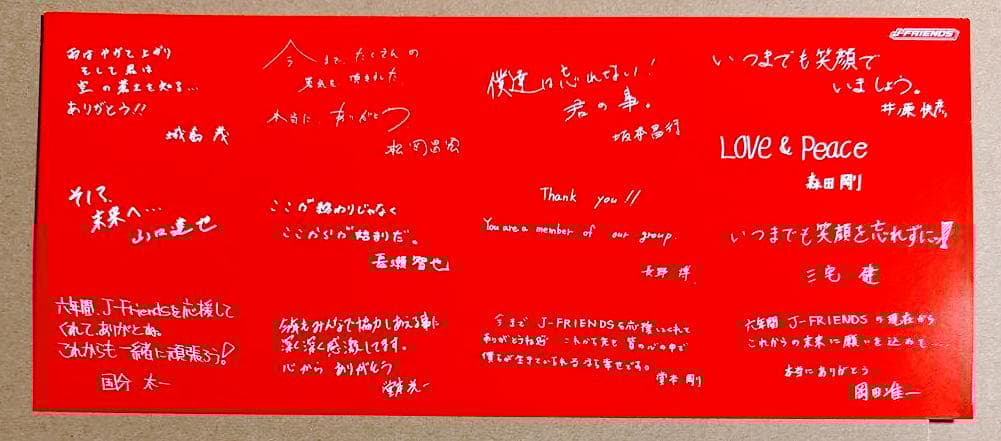 J-FRIENDS
雨はやがて上がり
そして君は
空の蒼さを知る…
ありがとう!!
城島 茂
今まで、たくさんの
勇気を頂きました。
本当に、ありがとう
松岡昌宏
僕達は忘れてない!
君の事。
坂本昌行
いつまでも笑顔で
いましょう。
井ノ原快彦
LOVE & Peace
森田 剛
そして、
未来へ…
山口達也
ここが終わりじゃなく
ここからが始まりだ。
長瀬智也
Thank you!!
You are a member of our group.
長野 博
いつまでも笑顔を忘れずにっ!
三宅 健
六年間、J-Friendsを応援して
くれて、ありがとね。
これからも一緒に頑張ろう!
国分 太一
今後もみんなで協力しあえる事に
深く深く感謝してます。
心から ありがとう
堂本光一
今まで J-FRIENDSを応援してくれて
ありがとうね これから先も 皆の心の中で
僕らが生きていられるなら幸せです。
堂本 剛
六年間 J-FRIENDSの現在から
これからの未来に願いを込めて……
本当にありがとう
岡田准一